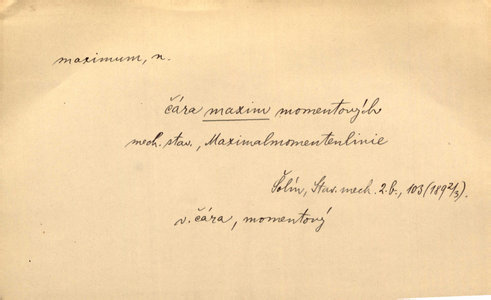 maximum, n.
čára maxim momentových
mech. stav., Maximalmomentenlinie
Šolín, Stav. mech. 2. b., 103 (1892/3).
v. čára, momentový